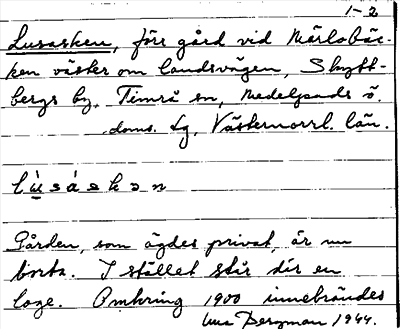 1-2
Lusasken, förr gård vid Märlobäc-
ken väster om landsvägen, Skytt-
bergs by, Timrå sn, Medelpads ö.
doms. lg, Västernorrl. län.
lùsáskən
Gården, som ägdes privat, är nu
borta. I stället står där en
loge. Omkring 1900 innebrändes
Bergman 1944.